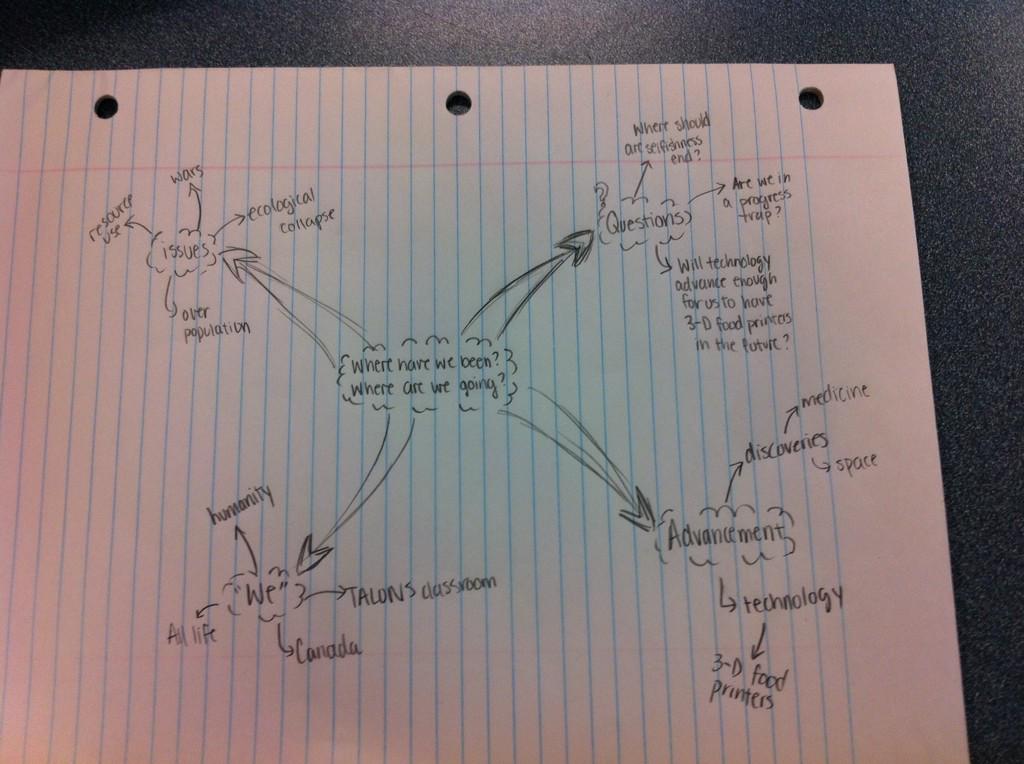 wars
resource
use
ecological
collapse
issues
over
population
Where should
are selfishness
end?
Questions
Are we in
a progress
trap?
Will technology
advance enough
for us to have
3-D food printers
in the future?
Where have we been?
Where are we going?
medicine
discoveries
space
Advancement
technology
3-D food
printers
humanity
"We"
TALONS classroom
All life
Canada